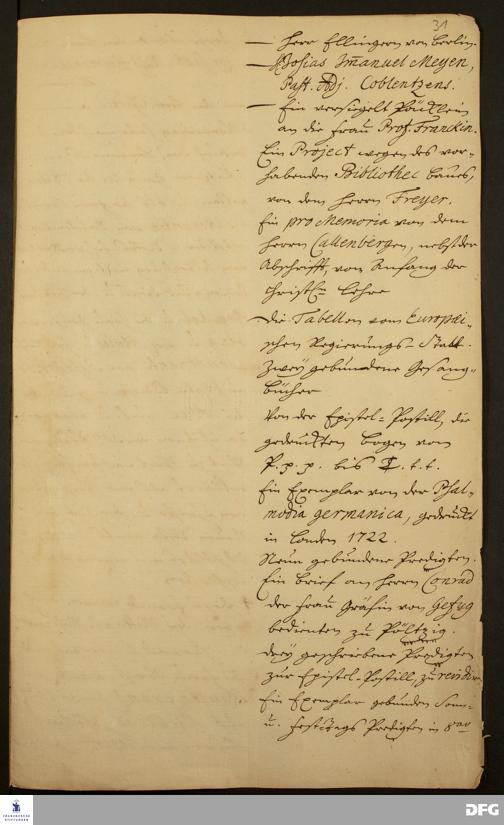 31
— Herr Ellingern von Berlin.
— Josias Im̄anuel Meyen,
Past. Adj. Coblentzens.
— Ein versiegelt Päcklein
an die Frau Prof. Franckin.
Ein Project wegen des vor-
habenden Bibliothec baues,
von dem Herrn Freyer.
Ein pro Memoria von dem
Herrn Callenbergen, nebst der
Abschrifft, vom Anfang der
Christln Lehre
— Die Tabellen vom Europäi-
schen Regierungs-Staat.
Zwey gebundene Gesang-
bücher
Von der Epistel-Postill, die
gedruckten bogen von
P. p. p. bis T. t. t.
Ein Exemplar von der Psal-
modia germanica, gedruckt
in Londen 1722.
Neun gebundene Predigten.
Ein brief an Herrn Conrad
der Frau Gräfin von
bedienten zu Pöltzig.
drey geschriebene Predigten
zur Epistel-Postill, zu
Ein Exemplar gebunden Sonn-
u. Festtags Predigten in 8vo
FRANCKESCHE
STIFTUNGEN
DFG